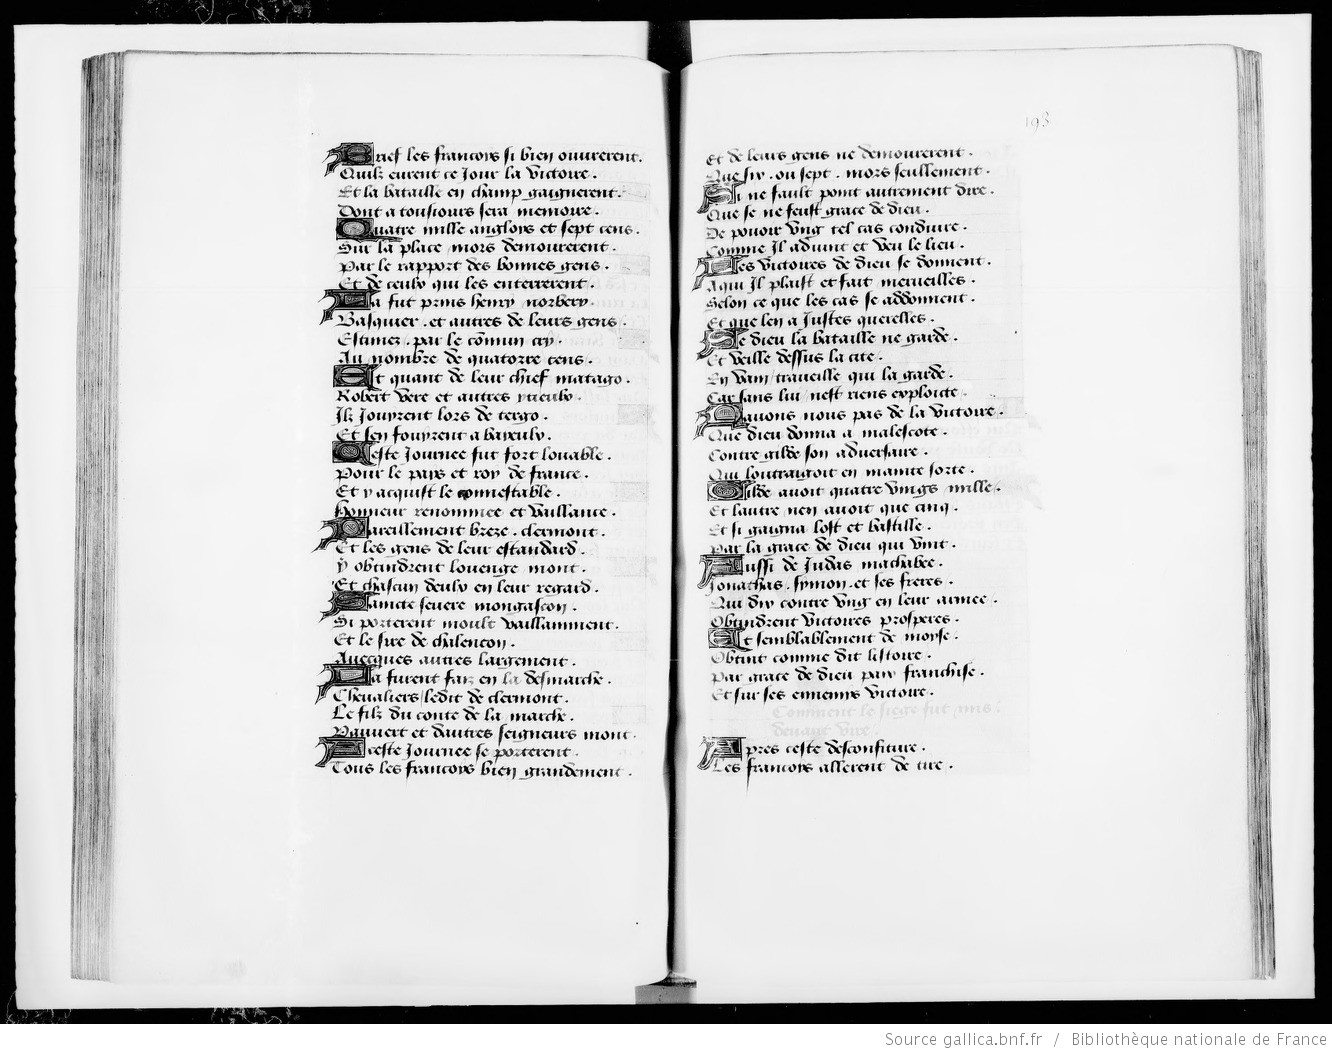 Brief les francoys si bien ouvrerent.
Quilz eurent ce Jour la victoire.
Et la bataille en champ gaignerent.
Dont a tousiours sera memoire.
Quatre mille angloys et sept cens.
Sur la place mors demourerent.
Par le rapport des bonnes gens.
Et de ceulx qui les enterrerent.
La fut prins henry norbery.
Vasquier. et autres de leurs gens.
Estimez. par le cõmun cry.
Au nombre de quatorze cens.
Et quant de leur chief matago.
Robert vere et autres ytieulx.
Ilz Jouyrent lors de tergo.
Et sen fouyrent a bayeulx.
Ceste Journee fut fort louable.
Pour le pays et roy de france.
Et y acquist le connestable.
Honneur renommee et vaillance.
Pareillement breze. clermont.
Et les gens de leur estandard.
Y obtindrent louenge mont.
Et chascun deulx en leur regard.
Saincte severe mongascon.
Si porterent moult vaillamment.
Et le sire de chalencon.
Avecques autres largement.
La furent faiz en la desmarche.
Chevaliers ledit de clermont.
Le filz du conte de la marche.
Vauvert et dautres seigneurs mont.
A ceste Journee se porterent.
Tous les francoys bien grandement.
193
Et de leurs gens ne demourerent.
Que six. ou sept. mors seullement.
Si ne fault point autrement dire.
Que se ne feust grace de dieu.
De pouoir vng tel cas conduire.
Comme Il advint et veu le lieu.
Les victoires de dieu se donnent.
A qui Il plaist et fait merveilles.
Selon ce que les cas se addonnent.
Et que len a Justes querelles.
Se dieu la bataille ne garde.
Et veille dessus la cite.
En vain traveille qui la garde.
Car sans lui nest riens exploicte.
Navons nous pas de la victoire.
Que dieu donna a malescote.
Contre gilde son adversaire.
Qui loutraigoit en mainte sorte.
Gilde avoit quatre vings mille.
Et lautre nen avoit que cinq.
Et si gaigna lost et bastille.
Par la grace de dieu qui vint.
Aussi de Judas machabee.
Jonathas. symon. et ses freres.
Qui dix contre vng en leur armee.
Obtindrent victoires prosperes.
Et semblablement de moyse.
Obtint comme dit listoire.
Par grace de dieu par franchise.
Et sur ses ennemys victoire.
Comment le siege fut mis
devant vire.
Apres ceste desconfiture.
Les francoys allerent de tire.
Source gallica.bnf.fr / Bibliothèque nationale de France